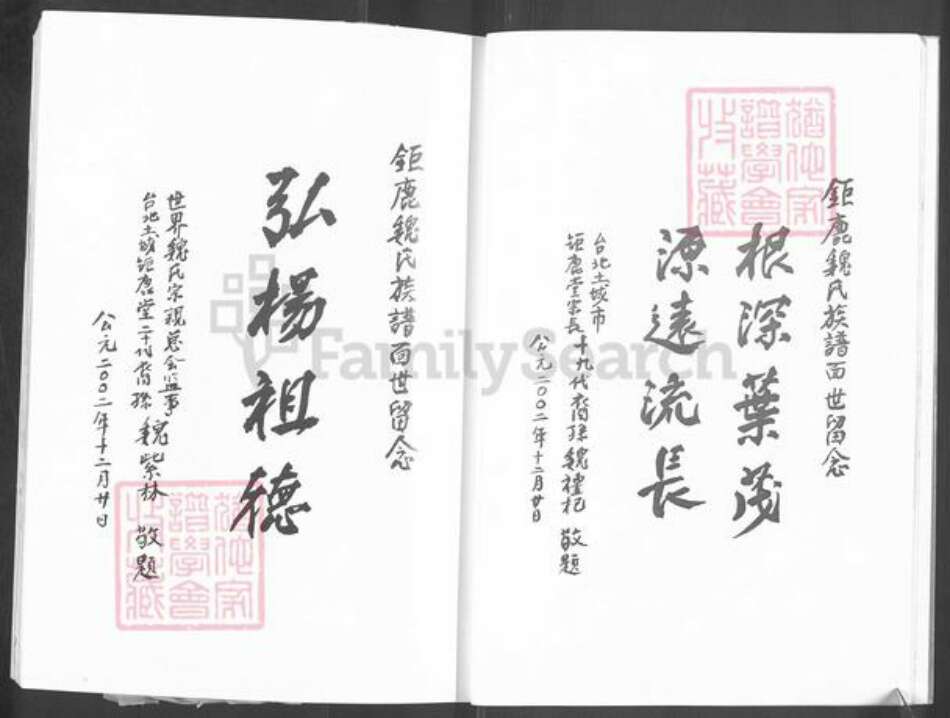 鉅鹿魏氏族譜面世留念
根深葉茂
源遠流長
台北土城市
鉅鹿堂宗長十九代裔孫魏禮杞 敬題
公元二〇〇二年十二月廿日
鉅鹿魏氏族譜面世留念
弘楊祖德
世界魏氏宗親总会监事
台北土城鉅鹿堂二十代裔孫 魏紫林 敬題
公元二〇〇二年十二月廿日
家
譜學會
收藏
家
譜學會
收藏
FamilySearch